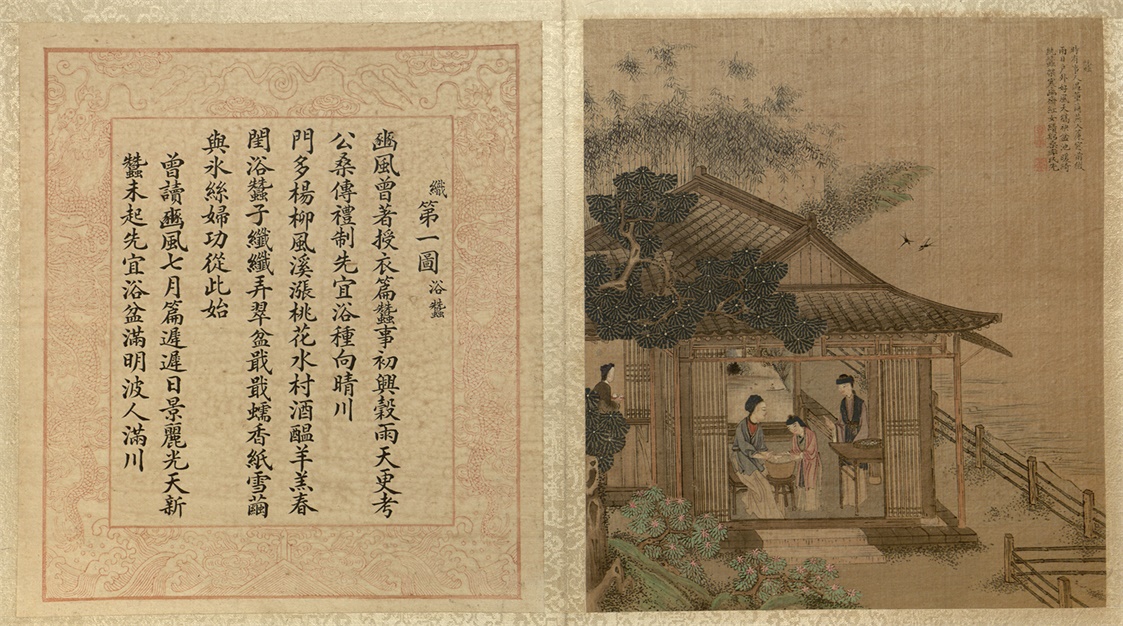 織第一圖浴蠶
豳風曾著授衣篇蠶事初興穀雨天更考
公桑傳禮制先宜浴種向晴川
門多楊柳風溪漲桃花水村酒醖羊羔春
閨浴蠶子纖纖弄翠盆戢戢蠕香紙雪繭
與氷絲婦功從此始
曾讀豳風七月篇遲遲日景麗光天新
蠶未起先宜浴盆滿明波人滿川